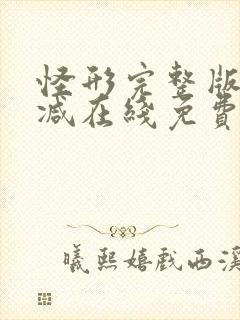 怪形完整版
减在綫免費
曦熙嬉戲西溪